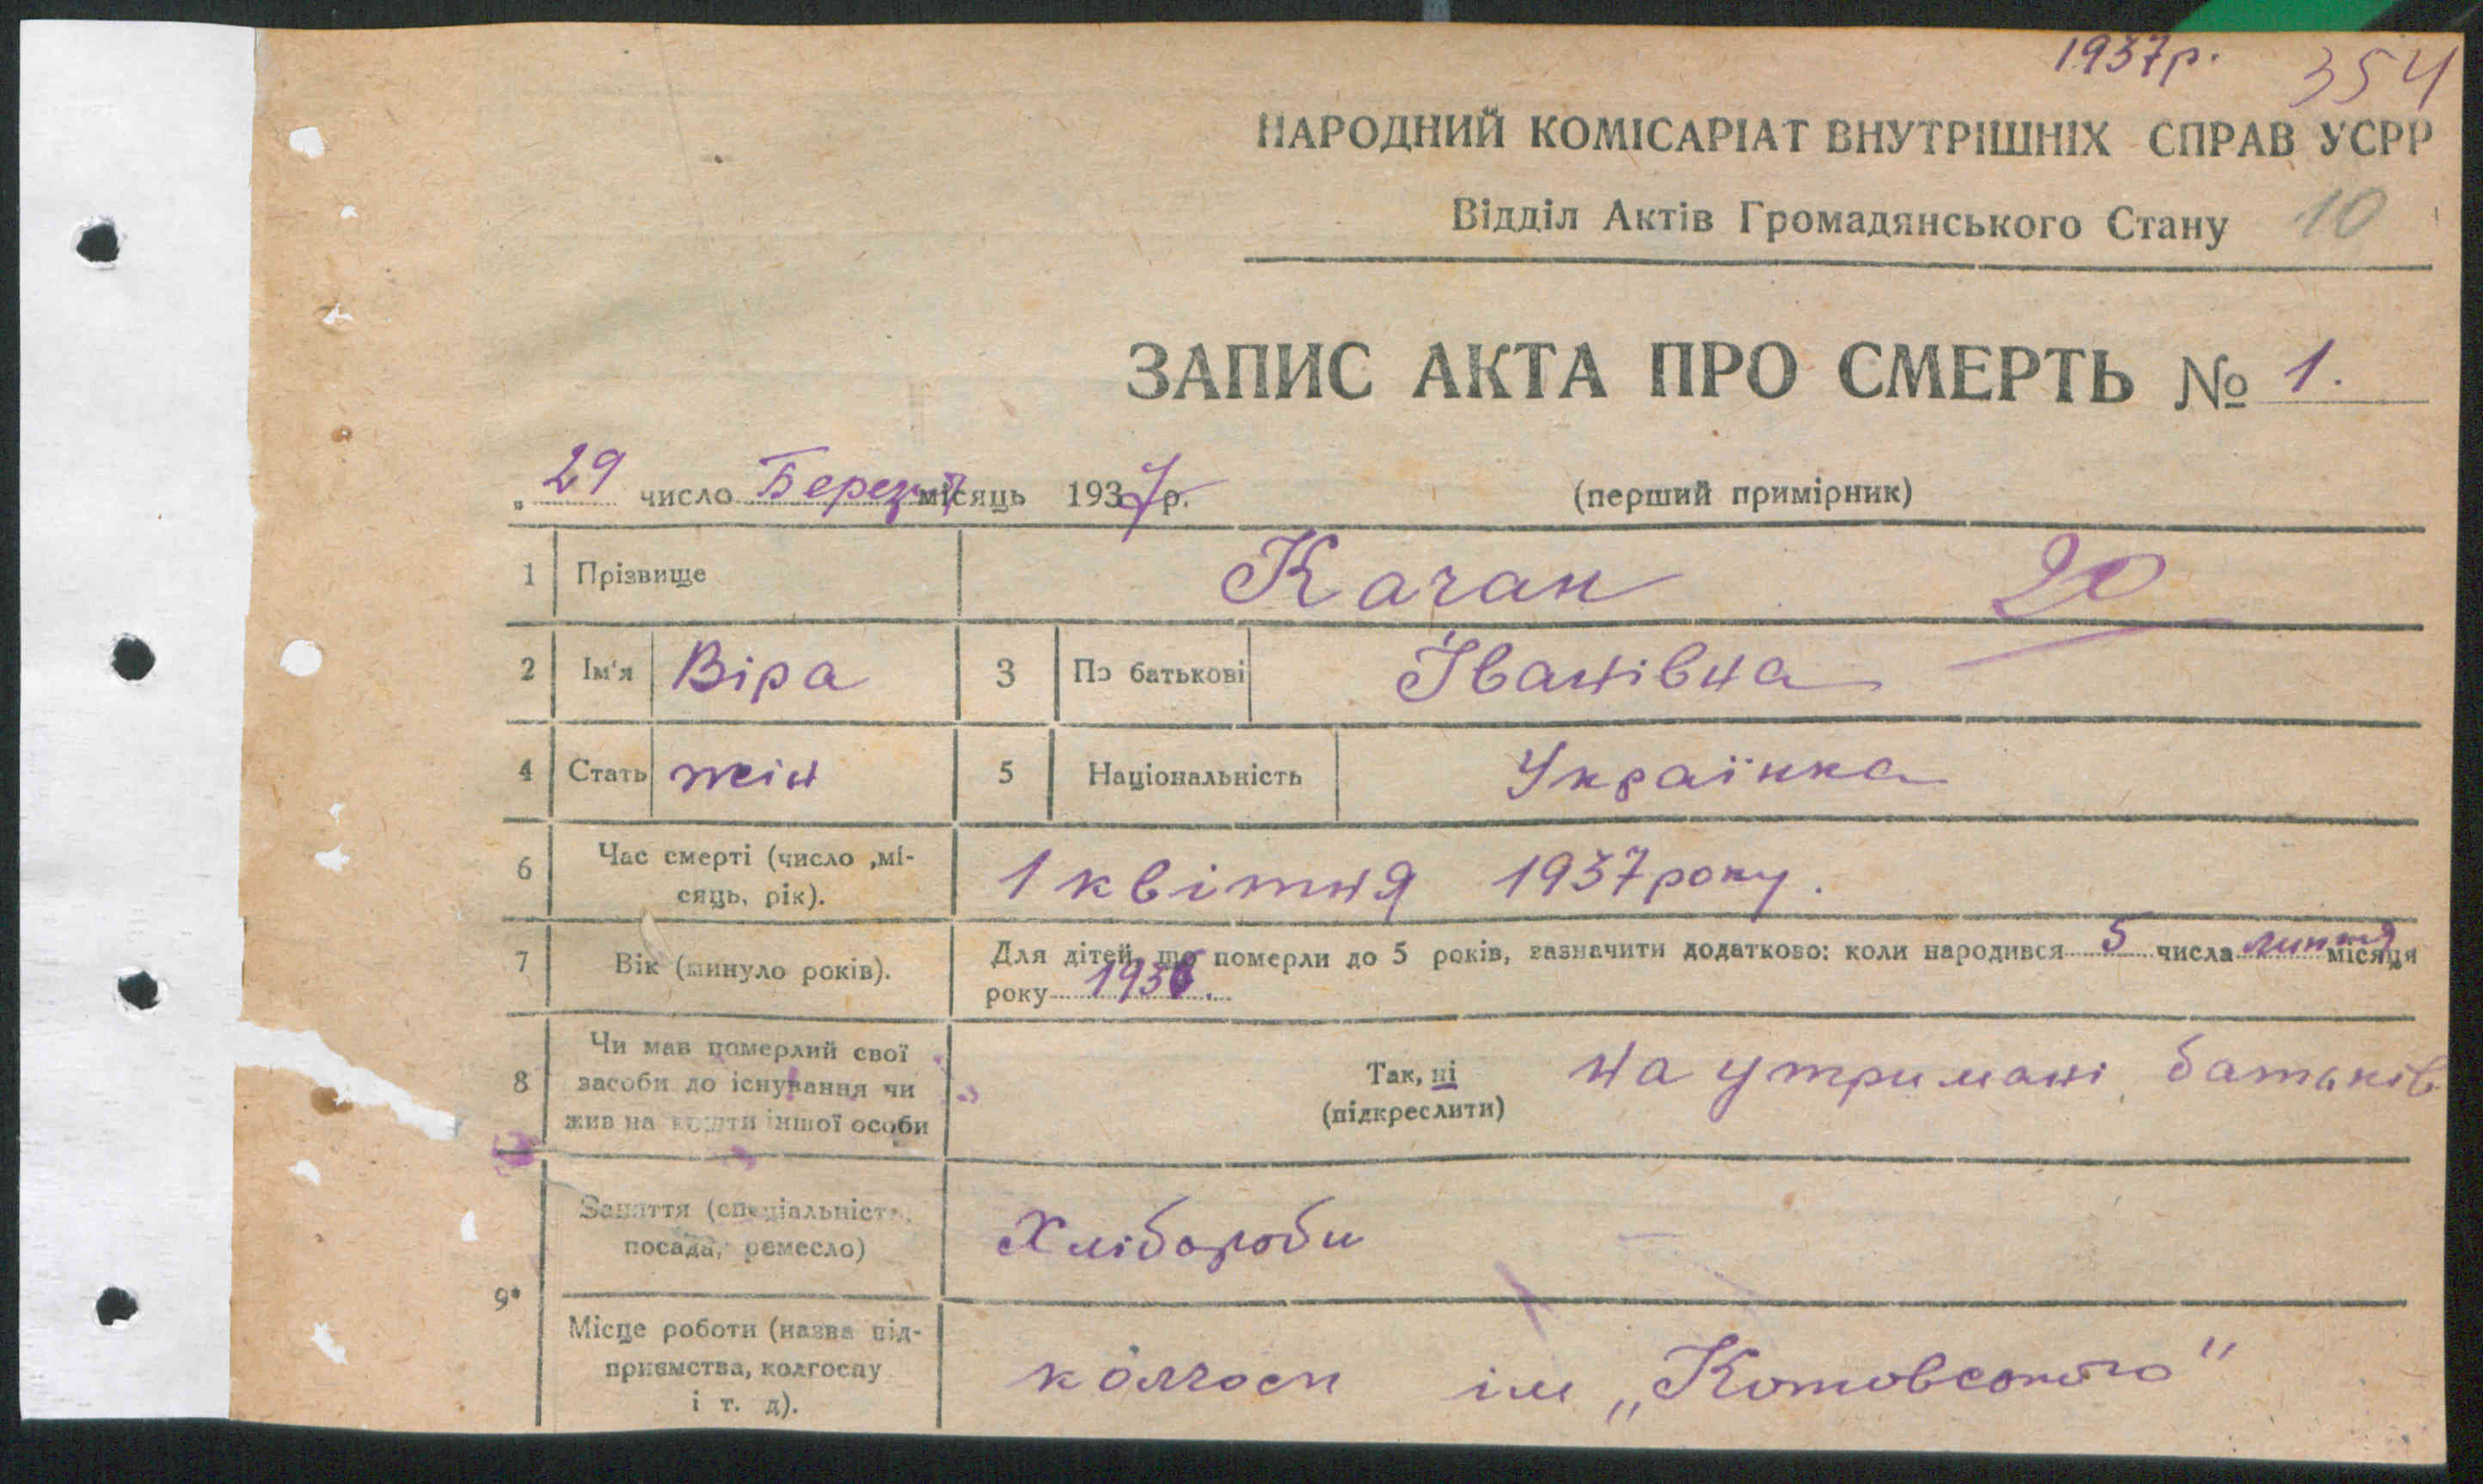 1937р. 354
НАРОДНИЙ КОМІСАРІАТ ВНУТРІШНІХ СПРАВ УСРР
Відділ Актів Громадянського Стану 10
ЗАПИС АКТА ПРО СМЕРТЬ № 1.
„ 29 число Березня місяць 1937 р. (перший примірник)
1 Прізвище Качан 20
2 Ім'я Віра 3 По батькові Іванівна
4 Стать жін 5 Національність Українка
6 Час смерті (число ,мі-
сяць, рік). 1 квітня 1937 року.
7 Вік (минуло років). Для дітей, що померли до 5 років, зазначити додатково: коли народився 5 числа липня місяця
року 1936.
8 Чи мав померлий свої
засоби до існування чи
жив на кошти іншої особи
Так, ні
(підкреслити) на утримані батьків
9*
Заняття (спеціальність,
посада, ремесло) Хлібороби
Місце роботи (назва під-
приємства, колгоспу
і т. д). колгосп ім „Котовського"